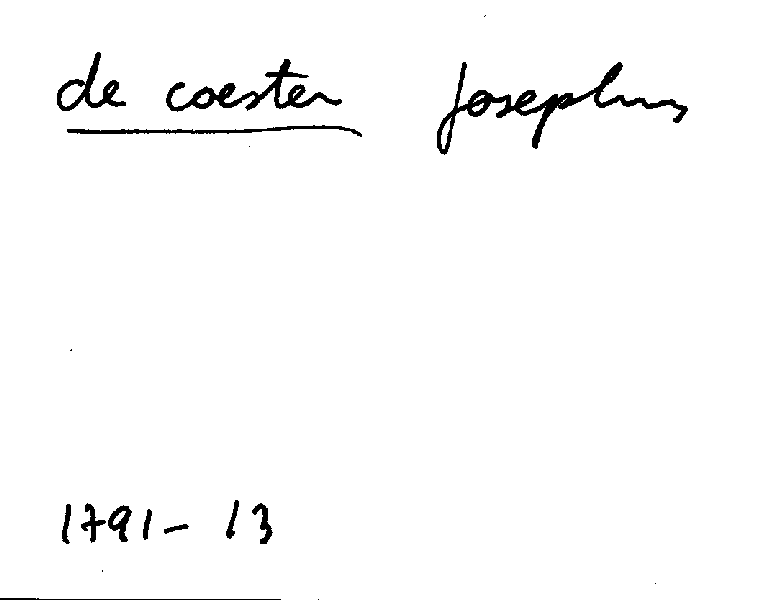 de coester Josephus
1791 - 13